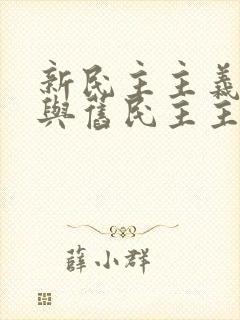 新民主主義
與舊民主主
薛小群